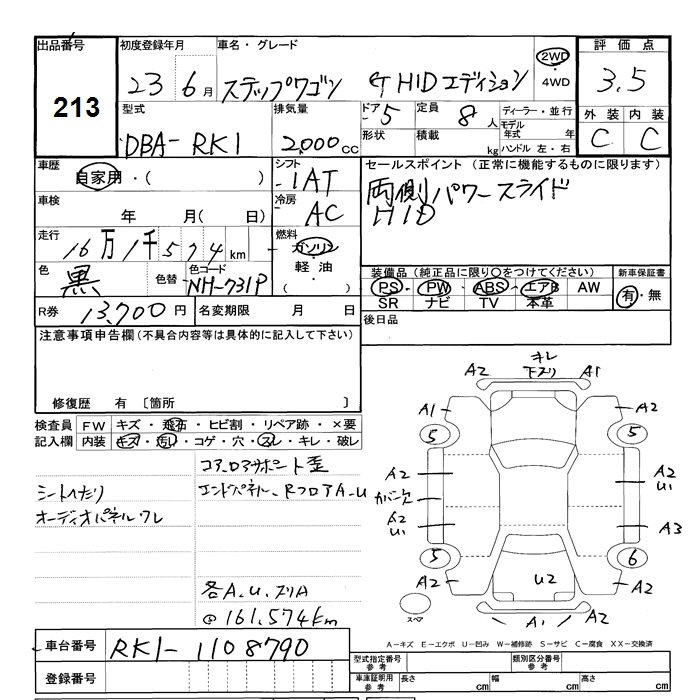 出品番号 初度登録年月 車名・グレード 評価点
213
23 6月 ステップワゴン G HIDエディション 2WD・4WD 3.5
型式 排気量 ドア 5 定員 8人 ディーラー・並行 外装 内装
DBA-RK1 2,000cc 形状 積載 kg モデル年式 年 ハンドル 左・右 C C
車歴 自家用・( ) シフト 1AT セールスポイント (正常に機能するものに限ります)
両側パワースライド
HID
車検 年 月( 日) 冷房 AC
走行 16万1千574km 燃料 ガソリン・軽油・( )
色 黒 色替 色コード NH-731P 装備品 (純正品に限り○をつけてください) 新車保証書
PS・PW・ABS・エアB AW 有・無
SR ナビ TV 本革
R券 13,700円 名変期限 月 日 後日品
注意事項申告欄(不具合内容等は具体的に記入して下さい)
修復歴 有 〔箇所 〕
検査員 FW キズ・飛石・ヒビ割・リペア跡・×要
記入欄 内装 キズ・汚れ・コゲ・穴・スレ・キレ・破レ
コアロアサポート歪
シートヘたり エンドパネル、RフロアA、U
オーディオパネルワレ
各A、U、スリA
@161,574km
キレ
A2 下スリ A1
A1 A2
5 5
A2 A2
U1
カバー欠
A2 A3
U1
5 6
A2 U2 A2
スペア A1 A2
A-キズ E-エクボ U-凹み W-補修跡 S-サビ C-腐食 XX-交換済
車台番号 RK1-1108790
登録番号
型式指定番号 参考 類別区分番号 参考
車庫証明用 参考 長さ cm 幅 cm 高さ cm